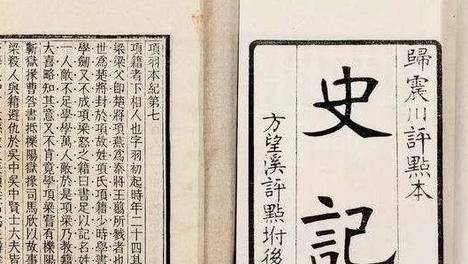 歸震川評點本
史記
方望溪評點坿後
項羽本紀第七
項籍者下相人也字羽初起時年二十四其
梁梁父即楚將項燕為秦將王翦所戮者也
世為楚將封於項故姓項氏項籍少時學書
學劍又不成項梁怒之籍曰書足以記名姓
一人敵不足學學萬人敵於是項梁乃教籍
大喜略知其意又不肯竟學項梁嘗有櫟陽
蘄獄掾曹咎書抵櫟陽獄掾司馬欣以故事
梁殺人與籍避仇於吳中吳中賢士大夫皆